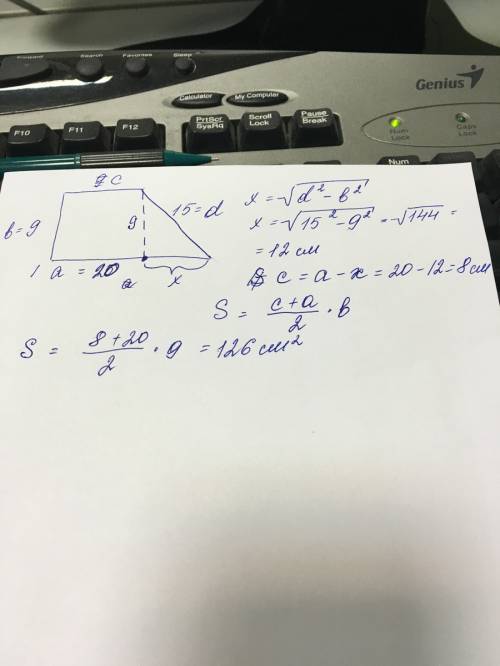 Search Favorites Sleep
Calculator My Computer
Genius
F10 F11 F12 PrtScr SysRq Scroll Lock Pause Break
Num Lock Caps Lock
Num
c
в = 9
9
15 = d
a = 20
a
x
x = √(d² - в²)
x = √(15² - 9²) = √144 =
= 12 см
c = a - x = 20 - 12 = 8 см
S = (c + a)/2 · в
S = (8 + 20)/2 · 9 = 126 см²